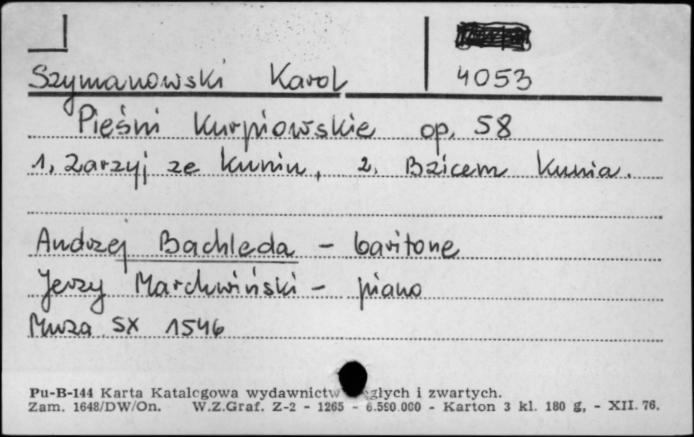 Szymanowski Karol 4053
Pieśni Kurpiowskie op. 58
1, Zarzyj ze kuniu, 2. Bzicem kunia.
Andrzej Bachleda - baritone
Jerzy Marchwiński - piano
Muza SX 1546
Pu-B-144 Karta Katalogowa wydawnictw i zwartych.
Zam. 1648/DW/On. W.Z.Graf. Z-2 - 1265 - 6.590.000 - Karton 3 kl. 180 g, - XII. 76.